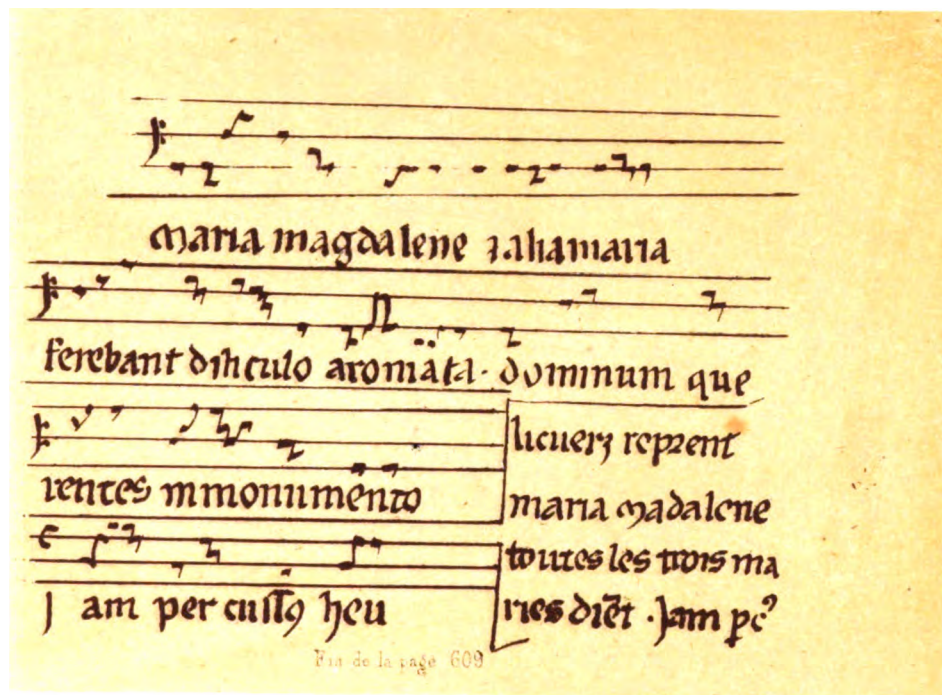 maria magdalene ⁊ aliamaria
ferebant diliculo aromata. dominum que
rentes in monumento
J am per heu
licuerz reprent
maria madalene
toutes les trois ma
ries diēt . Jam
Fin de la page 609